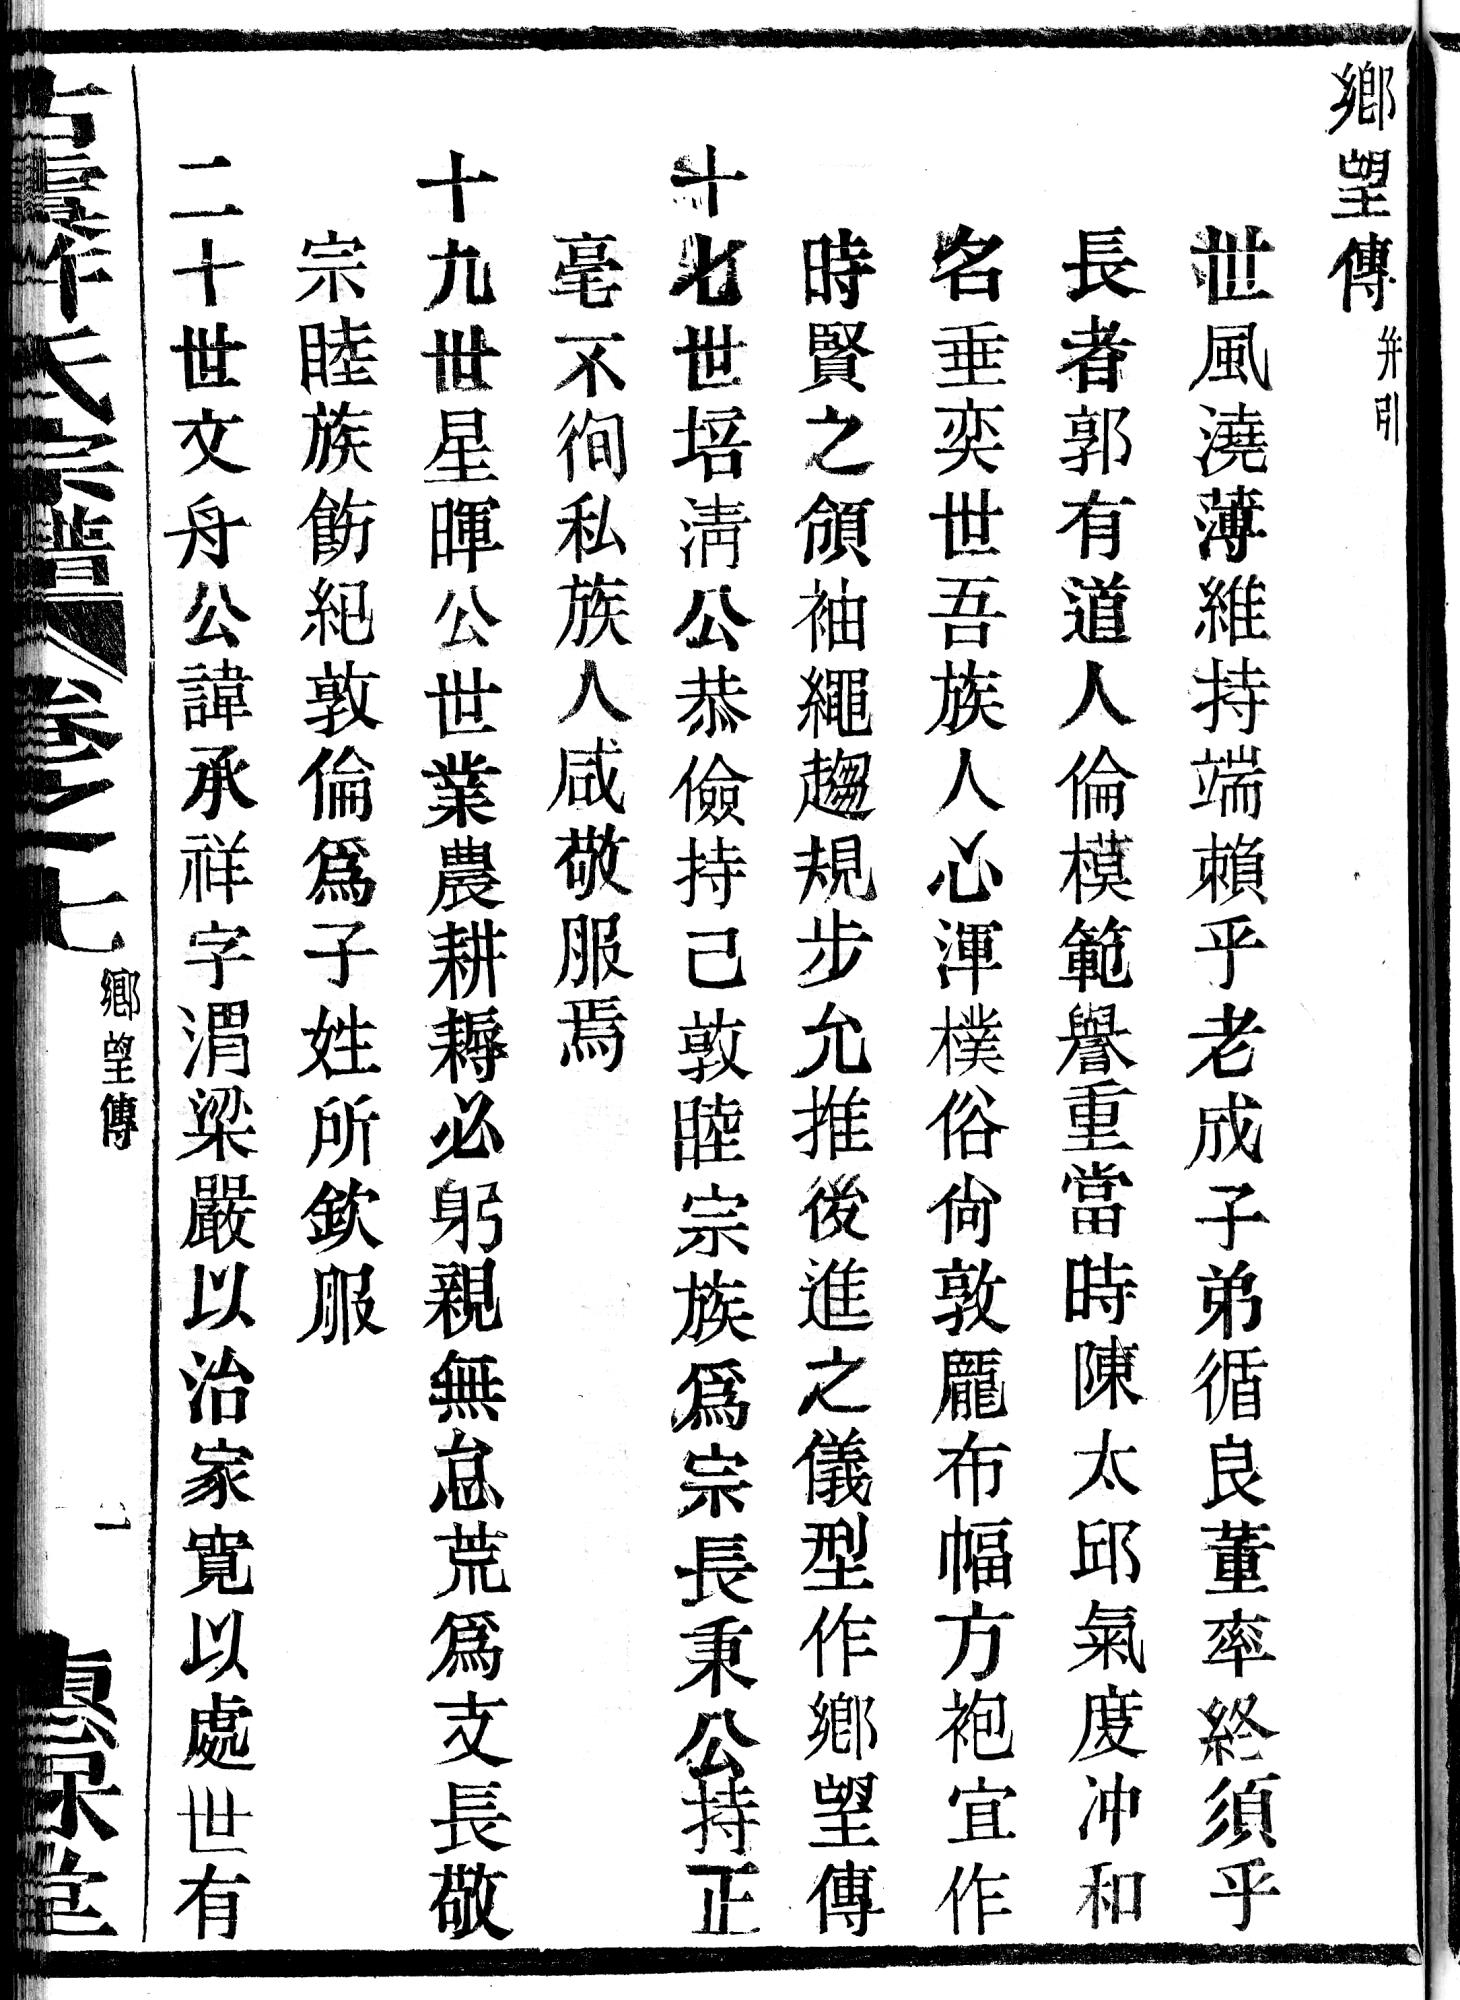 鄉望傳 并引
世風澆薄維持端賴乎老成子弟循良董率終須乎
長者郭有道人倫模範譽重當時陳太邱氣度冲和
名垂奕世吾族人心渾樸俗尙敦龐布幅方袍宜作
時賢之領袖繩趨規步允推後進之儀型作鄉望傳
十七世培淸公恭儉持己敦睦宗族爲宗長秉公持正
毫不徇私族人咸敬服焉
十九世星暉公世業農耕耨必躬親無怠荒爲支長敬
宗睦族飭紀敦倫爲子姓所欽服
二十世文舟公諱承祥字渭梁嚴以治家寬以處世有
氏宗譜 卷之七 鄉望傳 一